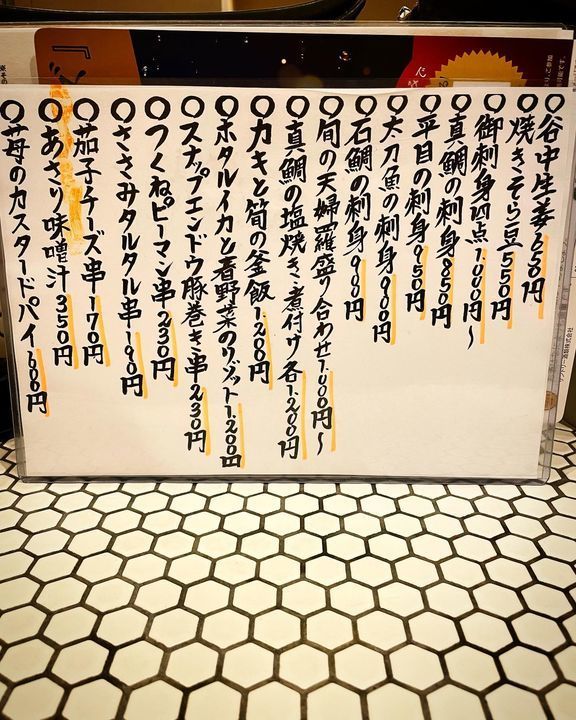 ○谷中生姜650円
○焼きそら豆550円
○御刺身四点1,000円〜
○真鯛の刺身850円
○平目の刺身950円
○太刀魚の刺身900円
○石鯛の刺身900円
○旬の天婦羅盛り合わせ1,000円〜
○真鯛の塩焼き・煮付け各1,200円
○カキと筍の釜飯1,200円
○ホタルイカと春野菜のリゾット1,200円
○スナップエンドウ豚巻き串230円
○つくねピーマン串230円
○ささみタルタル串190円
○茄子チーズ串170円
○あさり味噌汁350円
○苺のカスタードパイ600円